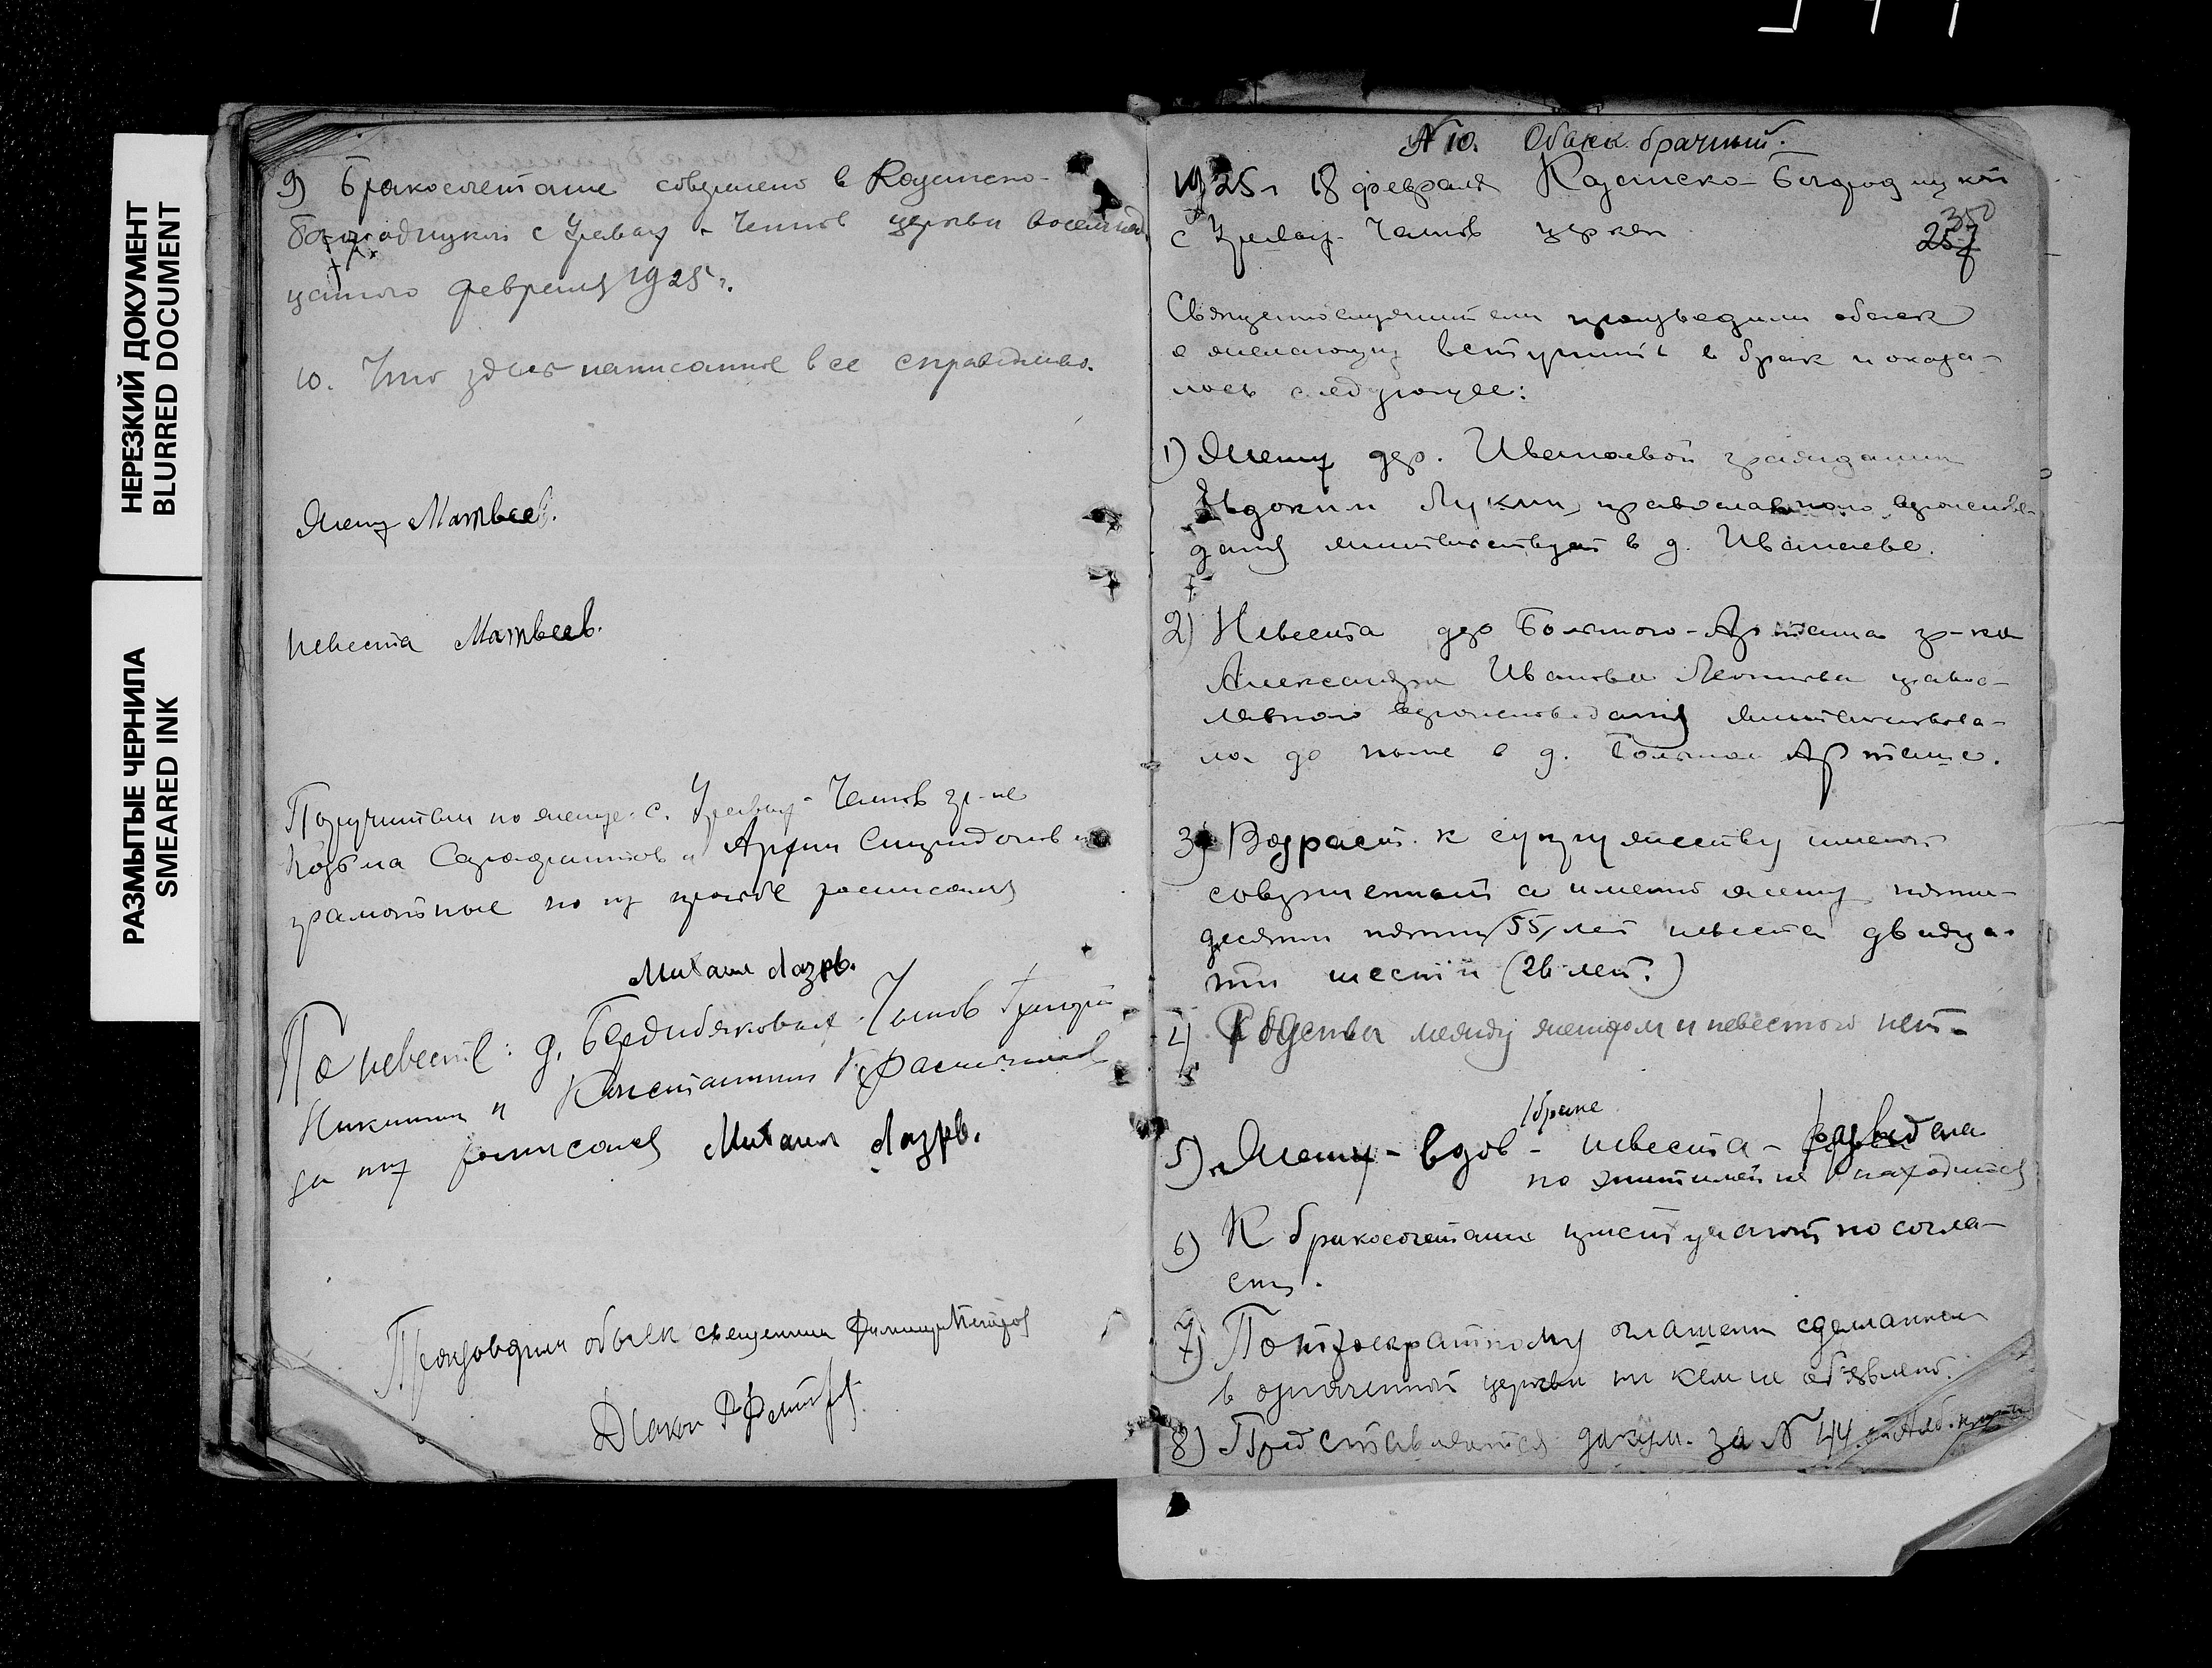 НЕРЕЗКИЙ ДОКУМЕНТ
BLURRED DOCUMENT
РАЗМЫТЫЕ ЧЕРНИЛА
SMEARED INK
9) Бракосочетание совершено в Казанско-
Богородицкой с Челнов церкви восемнад
цатого февраля 1925 г.
10. Что здесь написанное все справедливо.
Жених Матвеев.
Невеста Матвеев.
Поручители по женихе: с. Челнов гр-не
Козьма и Спиридонов и
грамотные по их просьбе росписался
Михаил Лазрв.
По невесте: д. Челнов Григорий
Никитин и Константин
за них росписался Михаил Лазрв.
Производили обыск священник
Диакон
№ 10. Обыск брачный.
1925 г 18 февраля Казанско-Богородицкой
с Челнов церкви
350
257
Священнослужители производили обыск
о желающих вступить в брак и оказа-
лось следующее:
1) Жених дер. Иванаевой гражданин
Евдоким Лукин, православного вероиспове-
дания жительствует в д. Иванаеве.
2) Невеста дер Большого-Арташа гр-ка
Александра Иванова Леонтьева правос-
лавного вероисповедания жительствова-
ла до ныне в д. Большом Арташе.
3) Возраст к супружеству имеют
совершенный а именно жених пяти-
десяти пяти /55/ лет невеста двадца-
ти шести (26 лет.)
4) Родства между женихом и невестою нет-
5) Жених - вдов - невеста -
I браке
по эпитимией не находится
6) К бракосочетанию приступают по согла-
сию.
7) По троекратному оглашению сделанном
в означенной церкви ни кем не объявлено.
8) Представляется докум. за № 44